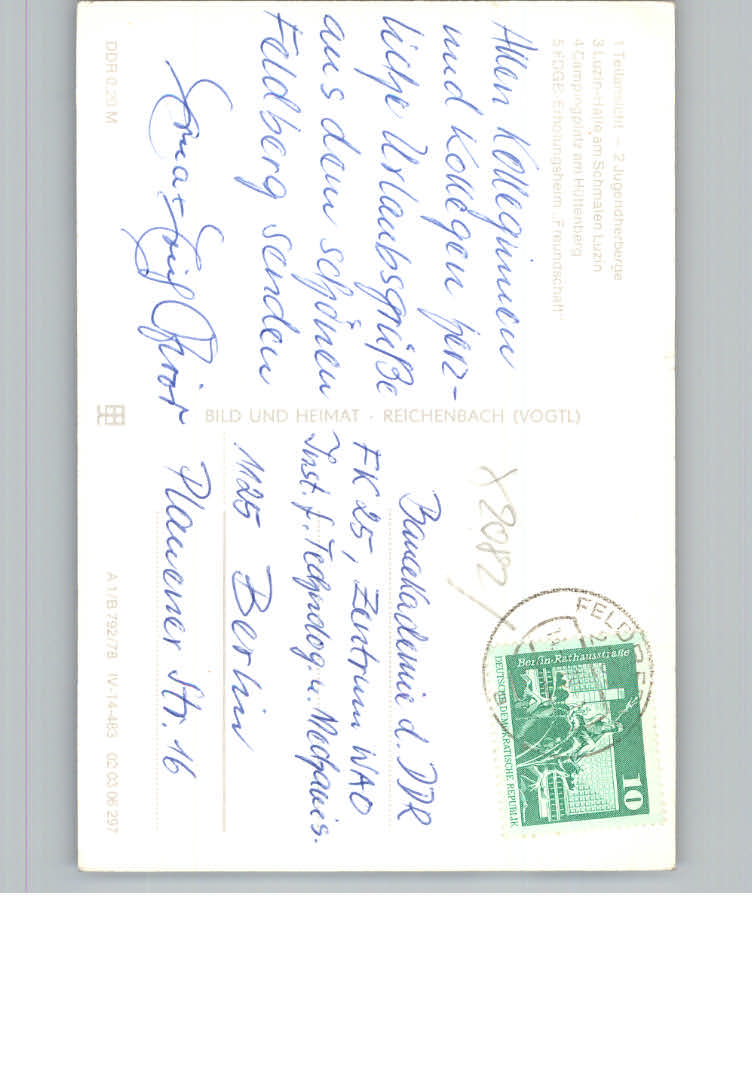 1 Teilansicht – 2 Jugendherberge
3 Luzin-Halle am Schmalen Luzin
4 Campingplatz am Hüttenberg
5 FDGB-Erholungsheim „Freundschaft"
Allen Kolleginnen
und Kollegen herz-
liche Urlaubsgrüße
aus dem schönen
Feldberg senden
Erna +
DDR 0,20 M
BILD UND HEIMAT · REICHENBACH (VOGTL)
X 2082/
FELDBE
Berlin-Rathausstraße
DEUTSCHE DEMOKRATISCHE REPUBLIK
10
Bauakademie d. DDR
FK 25, Zentrum WAO
Inst. f. Technolog. u. Mechanis.
1125 Berlin
Plauener Str. 16
A 1/B 792/78 IV-14-483 02 03 06 297